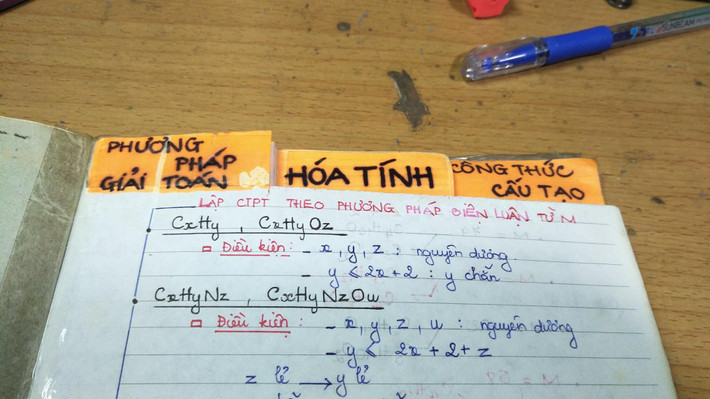 PHƯƠNG
PHÁP
GIẢI TOÁN
HÓA TÍNH
CÔNG THỨC
CẤU TẠO
LẬP CTPT THEO PHƯƠNG PHÁP BIÊN LUẬN TỪ M
CxHy , CxHyOz
Điều kiện : - x, y, z : nguyên dương.
- y ≤ 2x + 2 : y chẵn
CxHyNz , CxHyNzOu
Điều kiện : - x, y, z, u : nguyên dương
- y ≤ 2x + 2 + z
z lẻ → y lẻ